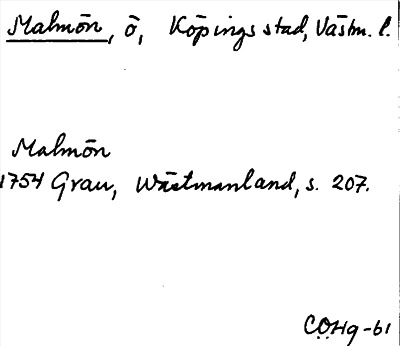 Malmön, ö, Köpings stad, Västm. l.
Malmön
1754 Grau, Wästmanland, s. 207.
COHg-61